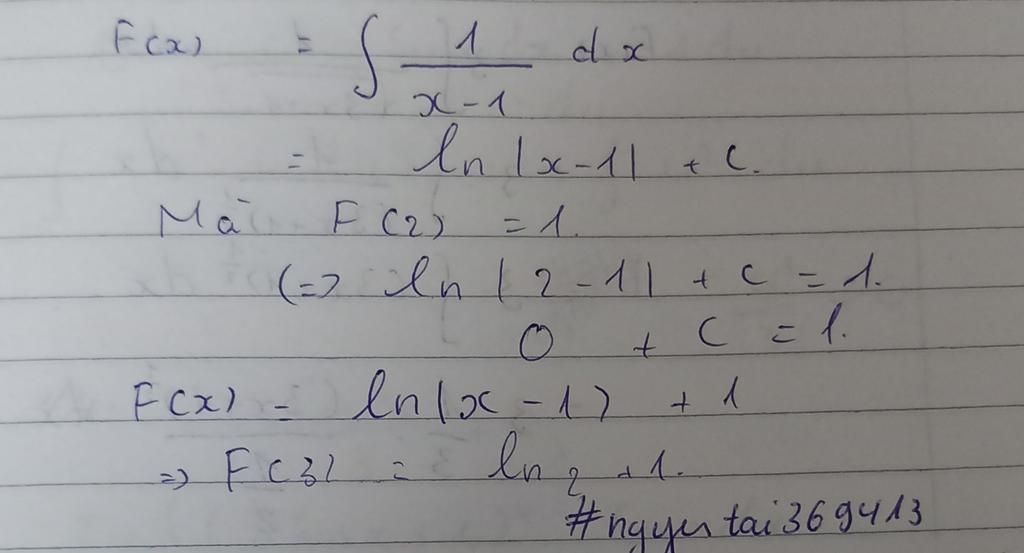 F(x) = ∫ 1/(x-1) dx
= ln |x-1| + C.
Mà F(2) = 1.
(=> ln |2-1| + C = 1.
0 + C = 1.
F(x) = ln(x-1) + 1
=> F(3) = ln2 + 1.
#nguyentai369413